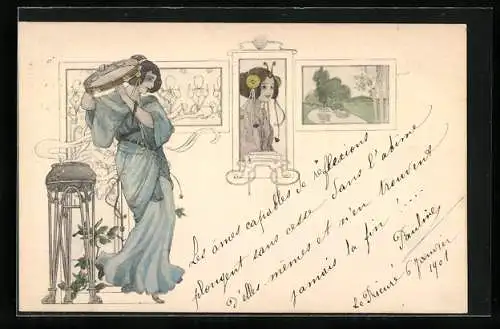 Les âmes capables de réflexions
plongent sans cesse dans l'abîme
D'elles-mêmes et n'en trouvent
jamais la fin !....
Pauline
6 Janvier
1901